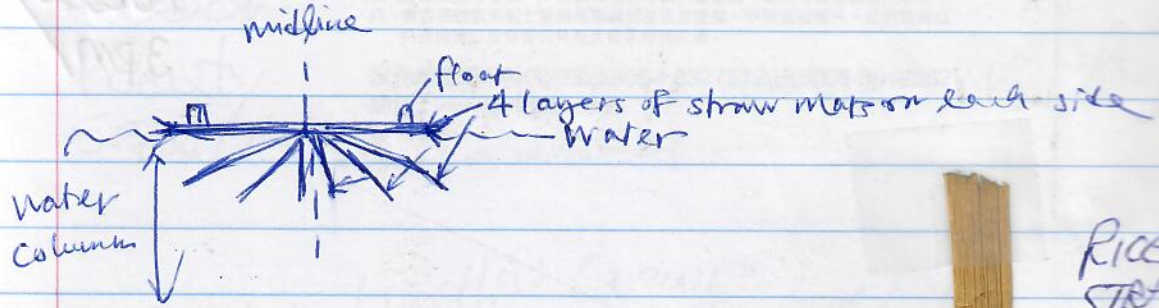 midline
float
4 layers of straw mats on each side
Water
water
column
RICE